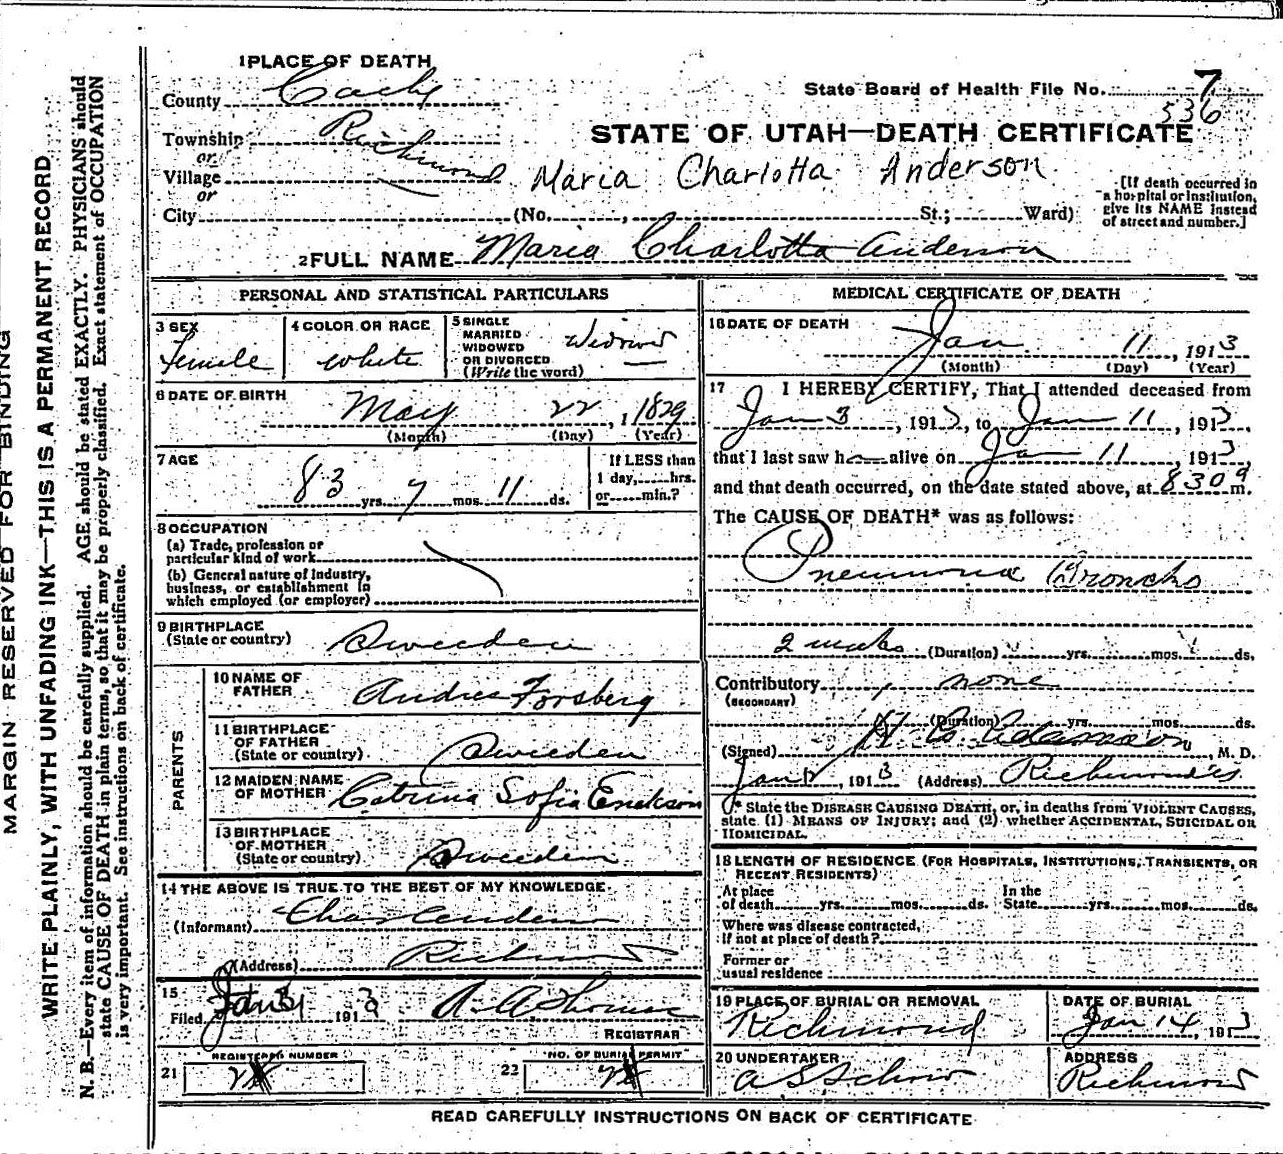 MARGIN RESERVED FOR BINDING
WRITE PLAINLY, WITH UNFADING INK—THIS IS A PERMANENT RECORD
N. B.—Every item of information should be carefully supplied. AGE should be stated EXACTLY. PHYSICIANS should
state CAUSE OF DEATH in plain terms, so that it may be properly classified. Exact statement of OCCUPATION
is very important. See instructions on back of certificate.
1 PLACE OF DEATH
County Cache
Township Richmond
or
Village
or
City (No. , St.; Ward)
State Board of Health File No. 7
536
STATE OF UTAH—DEATH CERTIFICATE
Maria Charlotta Anderson
[If death occurred in
a hospital or institution,
give its NAME instead
of street and number.]
2 FULL NAME Maria Charlotta Anderson
PERSONAL AND STATISTICAL PARTICULARS
3 SEX
Female
4 COLOR OR RACE
White
5 SINGLE
MARRIED
WIDOWED
OR DIVORCED
(Write the word)
Widowed
6 DATE OF BIRTH
May 22, 1829
(Month) (Day) (Year)
7 AGE
83 yrs. 7 mos. 11 ds.
If LESS than
1 day, hrs.
or min.?
8 OCCUPATION
(a) Trade, profession or
particular kind of work
(b) General nature of Industry,
business, or establishment in
which employed (or employer)
9 BIRTHPLACE
(State or country) Sweeden
PARENTS
10 NAME OF
FATHER Andres Forsberg
11 BIRTHPLACE
OF FATHER
(State or country) Sweeden
12 MAIDEN NAME
OF MOTHER Catrina Sofia Erickson
13 BIRTHPLACE
OF MOTHER
(State or country) Sweeden
14 THE ABOVE IS TRUE TO THE BEST OF MY KNOWLEDGE
(Informant) Chas
(Address) Richmond
15
Filed Jan 191 3
REGISTRAR
21 REGISTERED NUMBER
22 NO. OF BURIAL PERMIT
MEDICAL CERTIFICATE OF DEATH
16 DATE OF DEATH
Jan 11, 1913
(Month) (Day) (Year)
17 I HEREBY CERTIFY, That I attended deceased from
Jan 3, 1913, to Jan 11, 1913,
that I last saw h alive on Jan 11, 1913
and that death occurred, on the date stated above, at 830 a m.
The CAUSE OF DEATH* was as follows:
Pneumonia Broncho
2 weeks (Duration) yrs. mos. ds.
Contributory none
(SECONDARY)
(Duration) yrs. mos. ds.
(Signed) Adamson, M. D.
Jan, 1913 (Address) Richmond
* State the DISEASE CAUSING DEATH, or, in deaths from VIOLENT CAUSES,
state (1) MEANS OF INJURY; and (2) whether ACCIDENTAL, SUICIDAL OR
HOMICIDAL.
18 LENGTH OF RESIDENCE (FOR HOSPITALS, INSTITUTIONS, TRANSIENTS, OR
RECENT RESIDENTS)
At place
of death yrs. mos. ds.
In the
State yrs. mos. ds.
Where was disease contracted,
if not at place of death?
Former or
usual residence
19 PLACE OF BURIAL OR REMOVAL
Richmond
DATE OF BURIAL
Jan 14, 1913
20 UNDERTAKER
ADDRESS
Richmond
READ CAREFULLY INSTRUCTIONS ON BACK OF CERTIFICATE